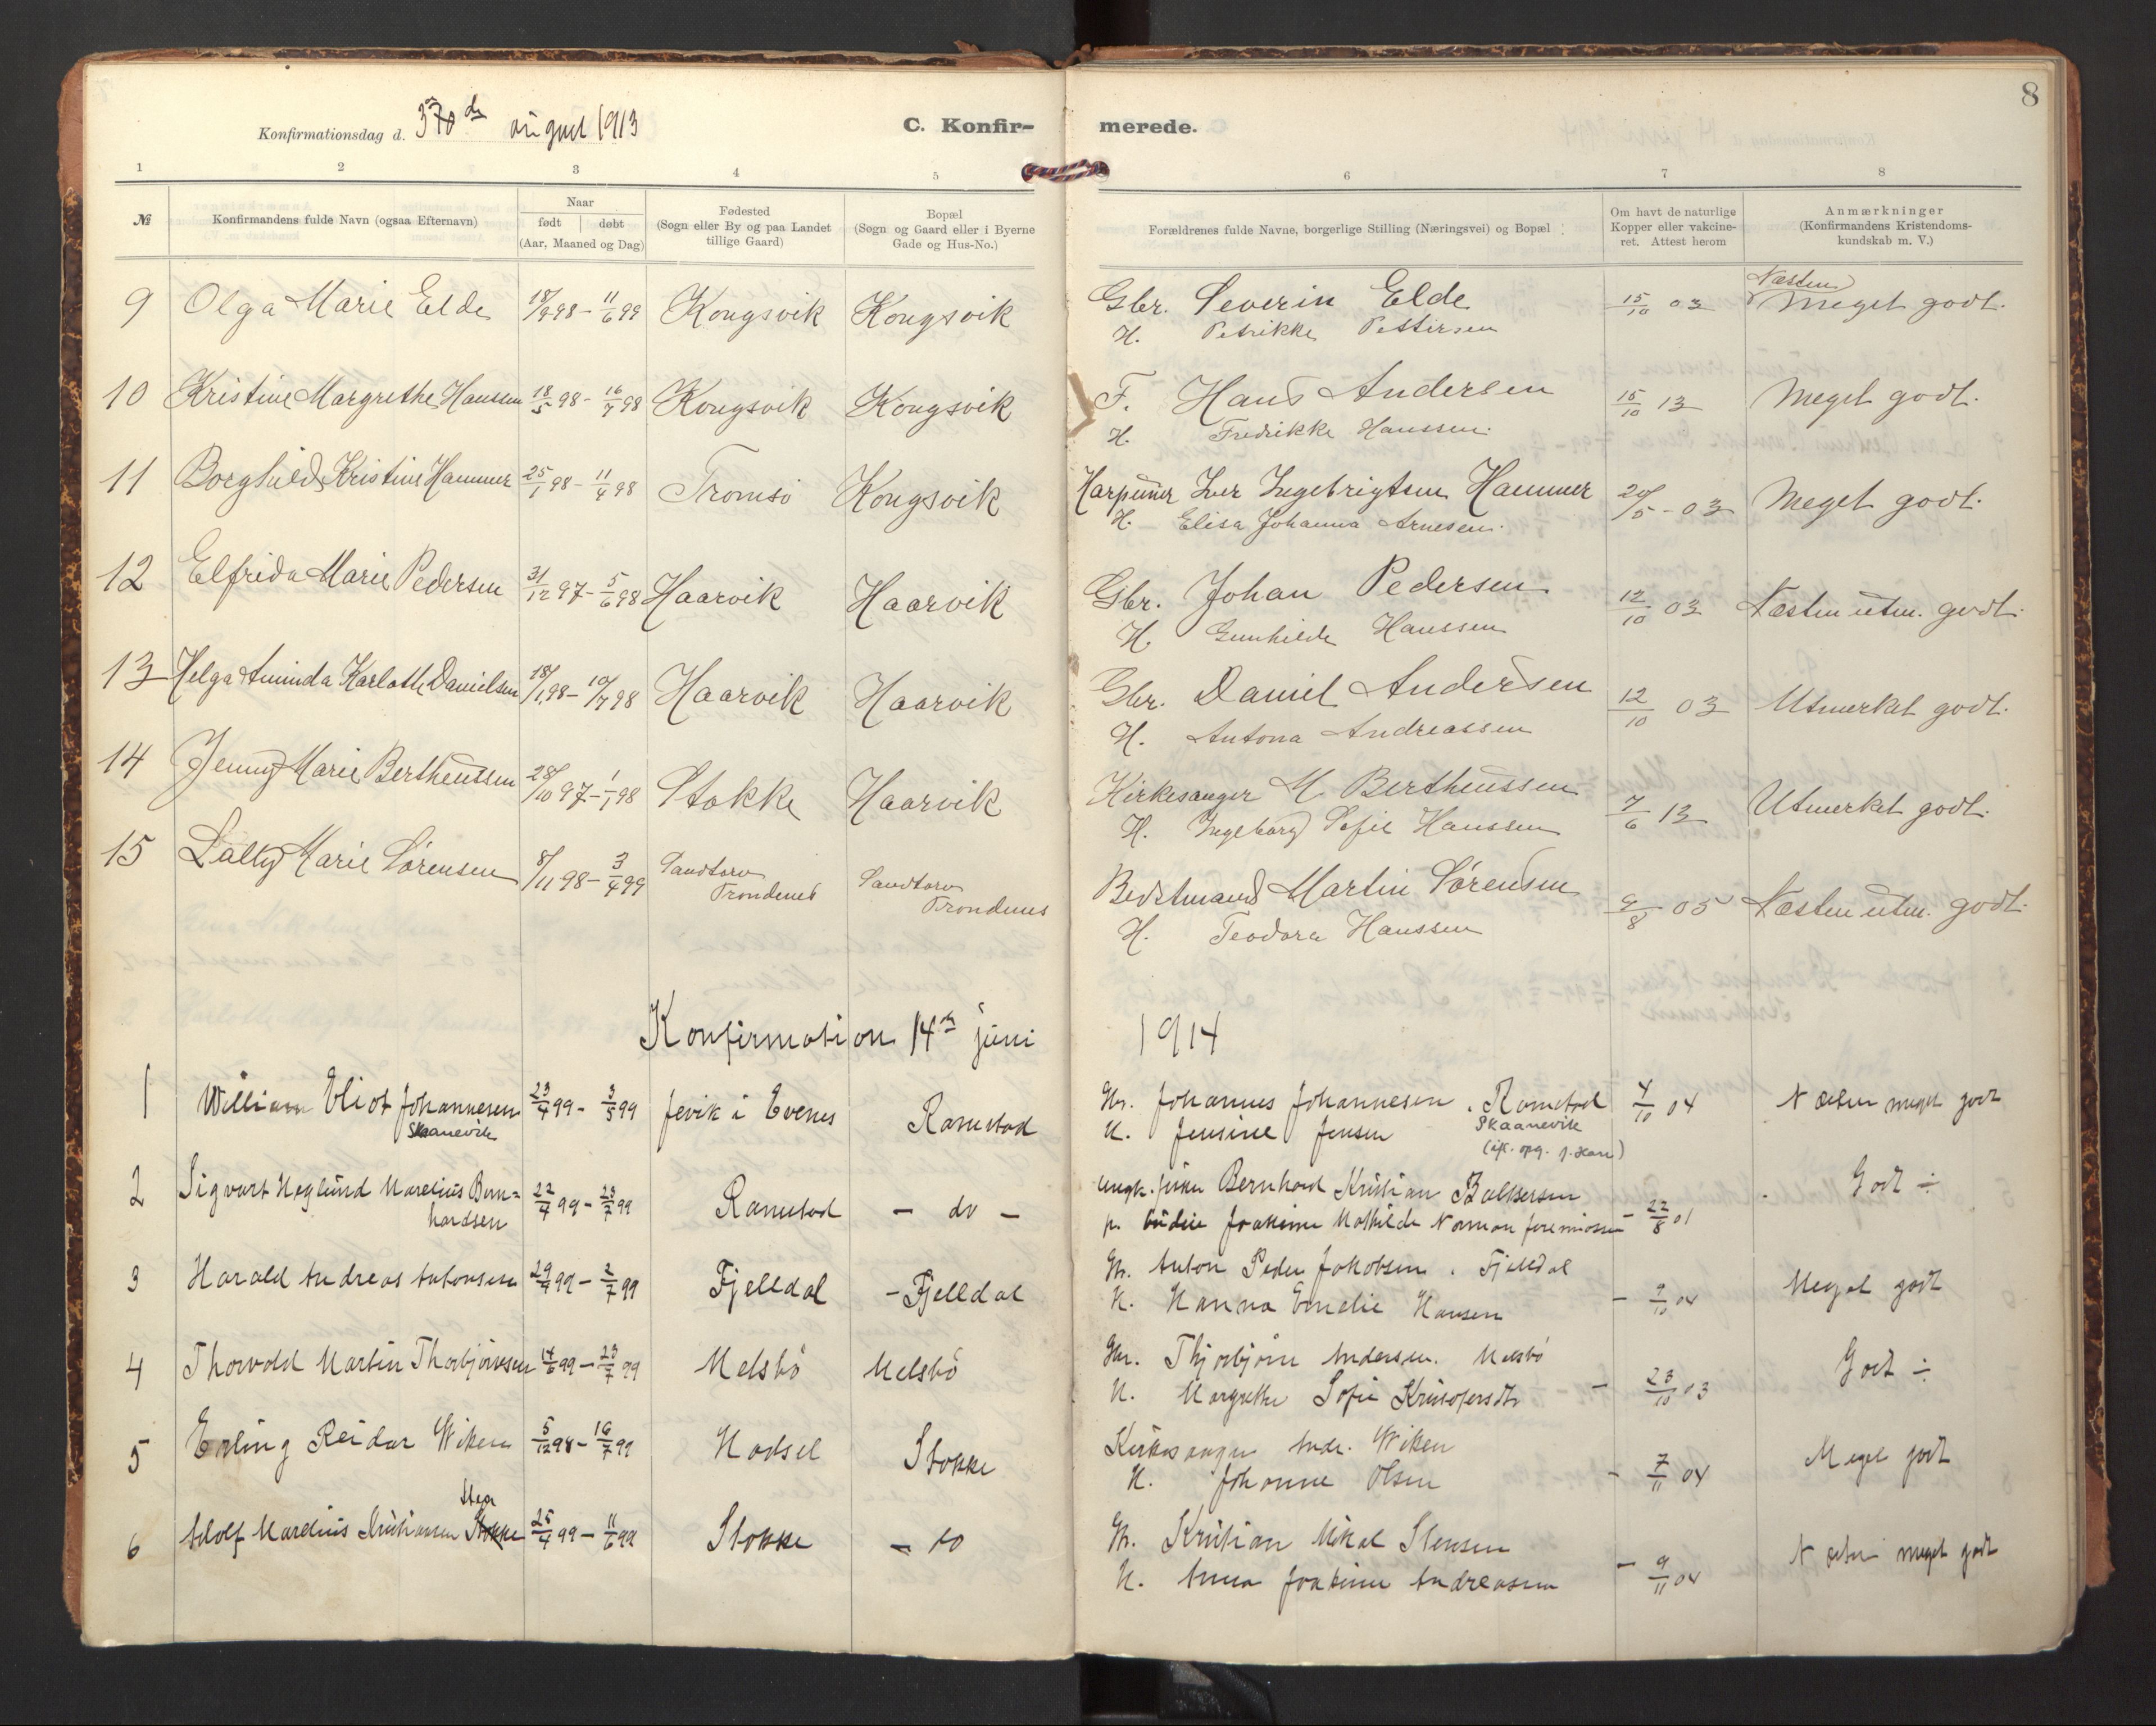 8
Konfirmationsdag d. august 1913
C. Konfir- merede.
1 2 3 4 5 6 7 8
№
Konfirmandens fulde Navn (ogsaa Efternavn)
Naar
født | døbt
(Aar, Maaned og Dag)
Fødested
(Sogn eller By og paa Landet
tillige Gaard)
Bopæl
(Sogn og Gaard eller i Byerne
Gade og Hus-No.)
Forældrenes fulde Navne, borgerlige Stilling (Næringsvei) og Bopæl
Om havt de naturlige
Kopper eller vakcine-
ret. Attest herom
Anmærkninger
(Konfirmandens Kristendoms-
kundskab m. V.)
9 Olga Marie Elde 18/9 98 - 11/6 99 Kongsvik Kongsvik Gbr. Severin Elde 15/10 03 Næsten Meget godt.
H. Petrikke Pettersen
10 Kristine Margrethe Hansen 18/5 98 - 16/7 98 Kongsvik Kongsvik F. Hans Andersen 15/10 13 Meget godt.
H. Fredrikke Hanssen.
11 Borghild Kristine Hammer 25/1 98 - 11/4 98 Tromsö Kongsvik Harpuner Iver Ingebrigtsen Hammer 20/5 - 03 Meget godt.
H. Elisa Johanna Arnesen.
12 Elfrida Marie Pedersen 31/12 97 - 5/6 98 Haarvik Haarvik Gbr. Johan Pedersen 12/10 03 Næsten utm. godt.
H. Gunhilde Hanssen
13 Helga Aminda Karlotte Danielsen 18/1 98 - 10/7 98 Haarvik Haarvik Gbr. Daniel Andersen 12/10 03 Utmerket godt.
H. Antona Andreassen
14 Jenny Marie Bertheussen 28/10 97 - 1/1 98 Stokke Haarvik Kirkesanger M. Bertheussen 7/6 13 Utmerket godt.
H. Ingeborg Sofie Hanssen
15 Lally Marie Sörensen 8/11 98 - 3/4 99 Sandtorv Trondenes Sandtorv Trondenes Bedstmand Martin Sörensen 9/8 05 Næsten utm. godt.
H. Teodora Hanssen
Konfirmation 14de juni 1914
1 William Eliot Johannesen 23/4 99 - 3/5 99 i Evenes Ramstad Gbr. Johannes Johannesen. Ramstad 4/10 04 Næsten meget godt
Skaanevik H. Jensine Jensen Skaanevik
2 Sigvart Høglund Marelius Bern= 22/4 99 - 23/7 99 Ramstad - do - ungk. Bernhard Kristian Baltsersen - 22/8 01 Godt ÷
hardsen p. Joakime Mathilde Norman Jeremiassen
3 Harald Andreas Antonsen 29/4 99 - 2/7 99 Fjelldal - Fjelldal Gbr. Anton Peder Jakobsen. Fjelldal - 9/10 04 Meget godt
H. Hanna Emelie Hansen
4 Thorvald Martin Thorbjörnsen 14/6 99 - 23/7 99 Melsbö Melsbö Gbr. Thjorbjörn Andersen. Melsbö - 23/10 03 Godt ÷
H. Margrethe Sofie Kristofersdtr
5 Erling Reidar Wiken 5/12 98 - 16/7 99 Hadsel Stokke Kirkesanger Andr. Wiken - 7/11 04 Meget godt
H. Johanne Olsen
6 Adolf Marelius Kristiansen Stokke 25/4 99 - 11/6 99 Stokke - do Gbr. Kristian Mikal Stensen - 9/11 04 Næsten meget godt
H. Anna Joakime Andreasen